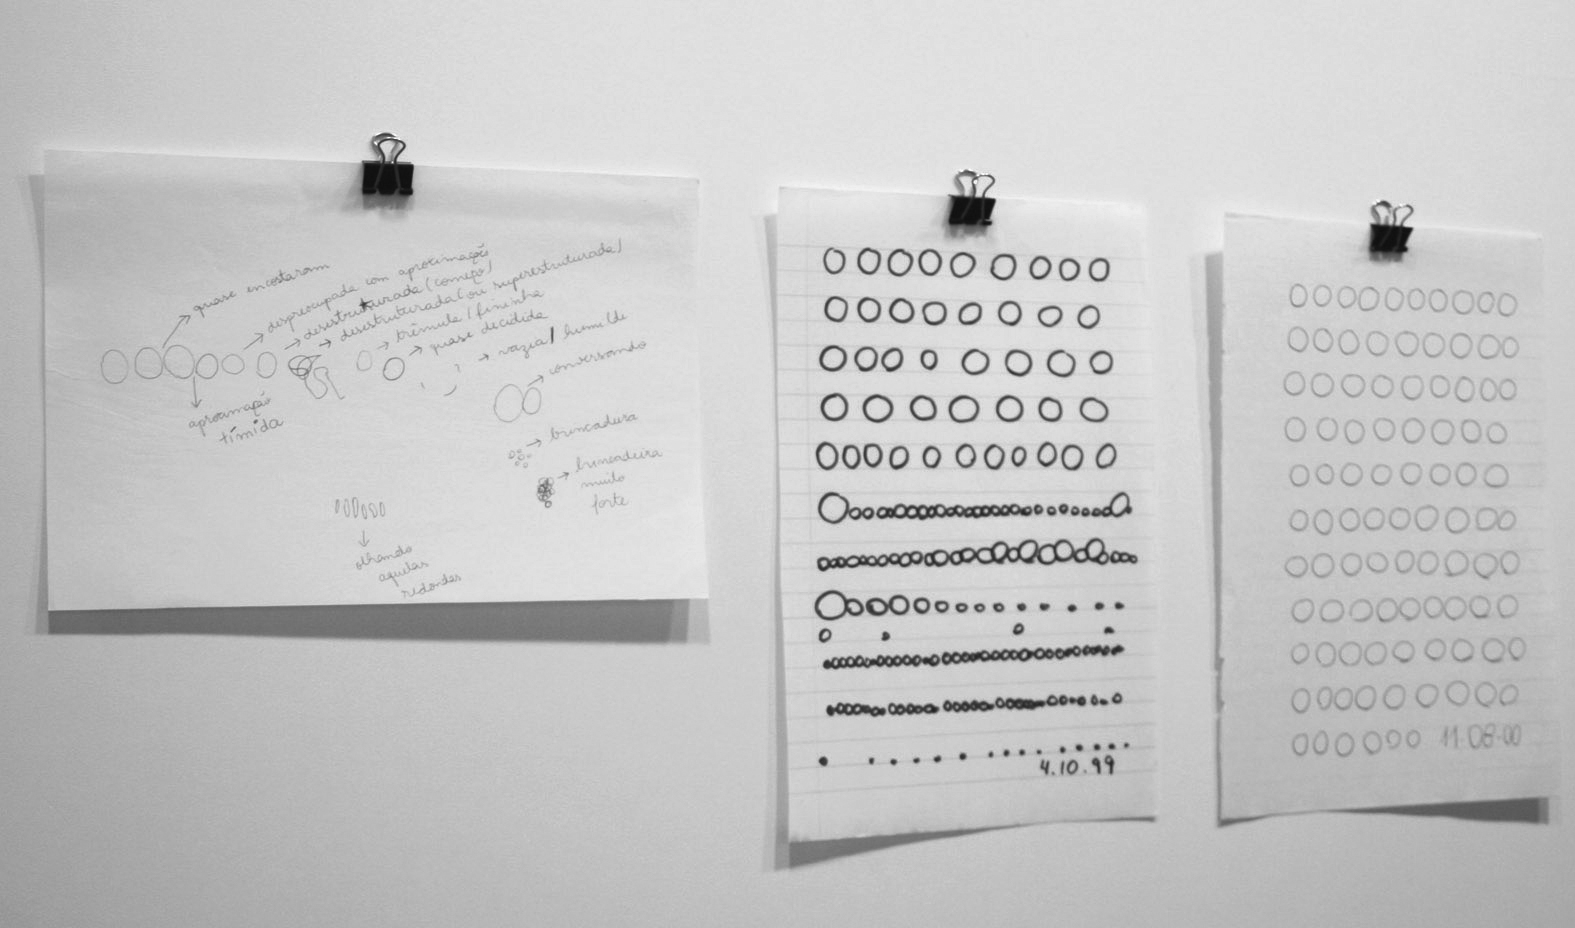 quase encostaram
despreocupada com aproximação
desestruturada (começo)
desestruturada (ou superestruturada)
trêmula / fininha
quase decidida
vazia / humilde
conversando
aproximação
tímida
brincadeira
brincadeira
muito
forte
olhando
aquelas
redondas
4.10.99
11.08.00